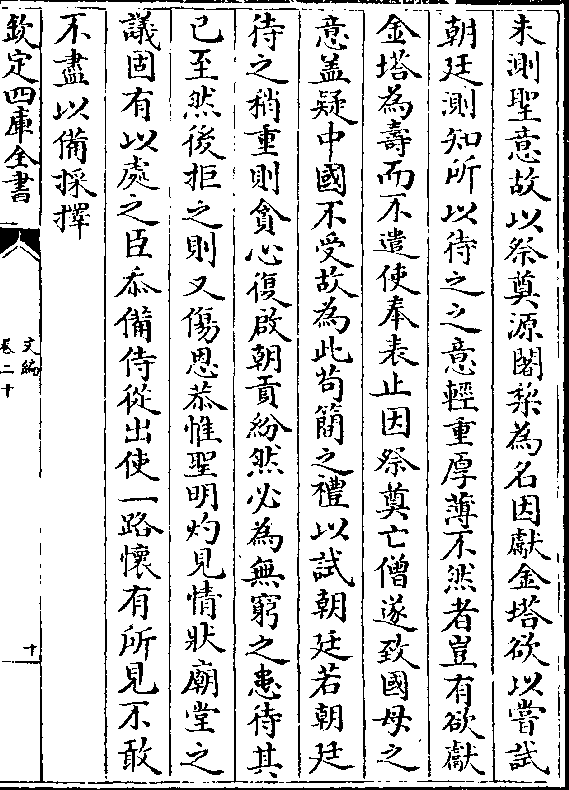 未測聖意故以祭奠源闍黎為名因獻金塔欲以嘗試
朝廷測知所以待之之意輕重厚薄不然者豈有欲獻
金塔為壽而不遣使奉表止因祭奠亡僧遂致國母之
意盖疑中國不受故為此苟簡之禮以試朝廷若朝廷
待之稍重則貪心復啟朝貢紛然必為無窮之患待其
已至然後拒之則又傷恩恭惟聖明灼見情狀廟堂之
議固有以處之臣忝備侍從出使一路懷有所見不敢
不盡以備採擇
欽定四庫全書
文編
卷二十
十